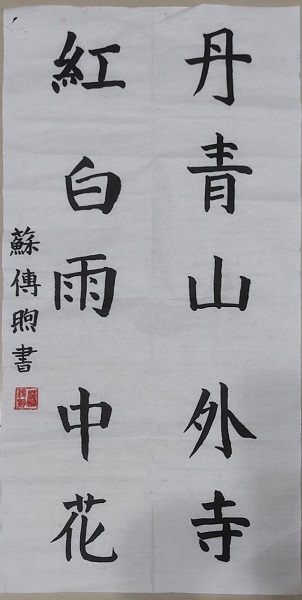 丹青山外寺
紅白雨中花
蘇傳煦書